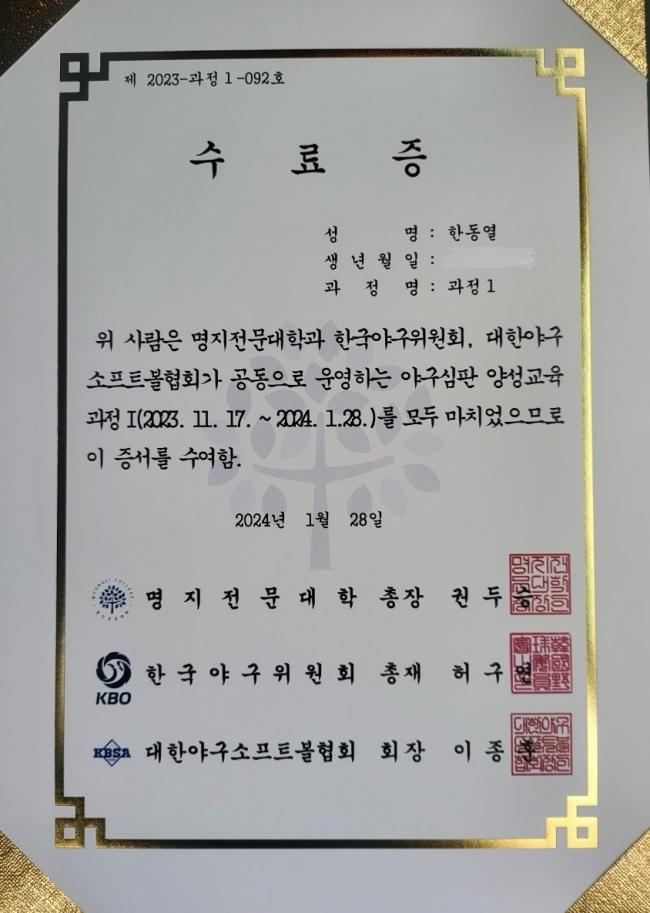 제 2023-과정1-092호
수 료 증
성 명 : 한동열
생 년 월 일 :
과 정 명 : 과정1
위 사람은 명지전문대학과 한국야구위원회, 대한야구
소프트볼협회가 공동으로 운영하는 야구심판 양성교육
과정 I(2023. 11. 17. ~ 2024. 1.28.)를 모두 마치었으므로
이 증서를 수여함.
2024년 1월 28일
명 지 전 문 대 학 총장 권 두 승
KBO 한 국 야 구 위 원 회 총재 허 구 연
KBSA 대한야구소프트볼협회 회장 이 종 훈